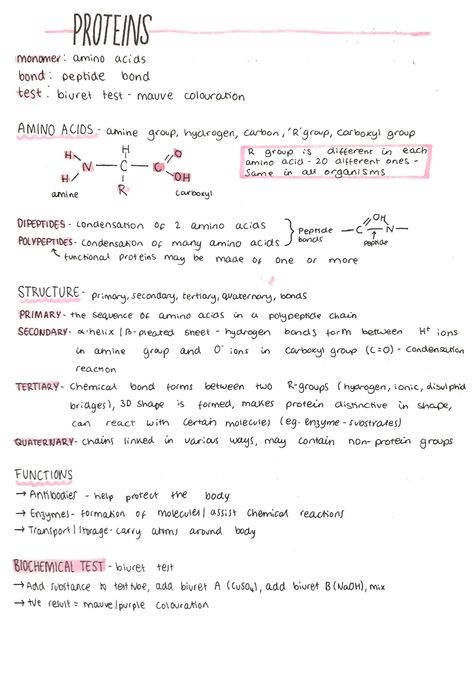 PROTEINS
monomer: amino acids
bond: peptide bond
test: biuret test - mauve colouration
AMINO ACIDS - amine group, hydrogen, carbon, 'R' group, carboxyl group
R group is different in each
amino acid - 20 different ones -
same in all organisms
H H O
N - C - C
H R OH
amine carboxyl
DIPEPTIDES - condensation of 2 amino acids
POLYPEPTIDES - condensation of many amino acids
Peptide
bonds
- C - N -
OH
peptide
functional proteins may be made of one or more
STRUCTURE - primary, secondary, tertiary, quaternary, bonds
PRIMARY - the sequence of amino acids in a polypeptide chain
SECONDARY - α-helix / β-pleated sheet - hydrogen bonds form between H⁺ ions
in amine group and O⁻ ions in carboxyl group (C=O) - condensation
reaction
TERTIARY - Chemical bond forms between two R-groups (hydrogen, ionic, disulphid
bridges), 3D shape is formed, makes protein distinctive in shape,
can react with certain molecules (eg. enzyme - substrates)
QUATERNARY - chains linked in various ways, may contain non-protein groups
FUNCTIONS
→ Antibodies - help protect the body
→ Enzymes - formation of molecules / assist chemical reactions
→ Transport / storage - carry atoms around body
BIOCHEMICAL TEST - biuret test
→ Add substance to test tube, add biuret A (CuSO₄), add biuret B (NaOH), mix
→ +ve result = mauve/purple colouration